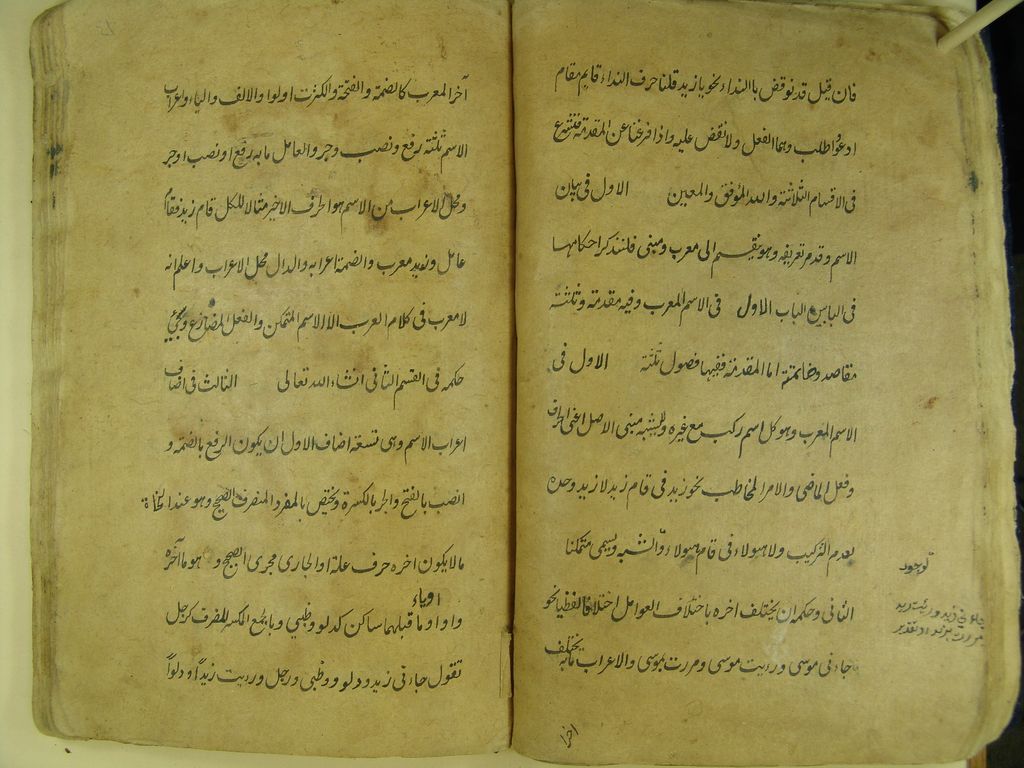 فان قيل قد نوقض باالنداء نحو يا زيد قلنا حرف النداء قايم مقام
ادعوا طلب وهما الفعل ولا نقض عليه واذا فرغنا عن المقدمة فلنشرع
فى الاقسام الثلاثة والله الموفق والمعين الاول فى بيان
الاسم وقد مر تعريفه وهو ينقسم الى معرب ومبنى فلنذكر احكامها
فى البابين الباب الاول فى الاسم المعرب وفيه مقدمة وثلثة
مقاصد وخاتمة اما المقدمة ففيها فصول ثلثة الاول فى
الاسم المعرب وهو كل اسم ركب مع غيره ولا يشبه مبنى الاصل اعنى الحرف
وفعل الماضى والامر المخاطب نحو زيد فى قام زيد لا زيد وحده
بعدم التركيب ولا هولاء فى قام هولاء والشبه ويسمى متمكنا
لوجود
الثانى وحكمه ان يختلف اخره باختلاف العوامل اختلافا لفظيا نحو
جاءنى زيد ورئيت زيد
مررت بزيد او تقدير
جاءنى موسى ورءيت موسى ومررت بموسى والاعراب مابه يختلف
اخرا
آخر المعرب كالضمة والفتحة والكسرة اولوا والالف والياء واعراب
الاسم ثلثة رفع ونصب وجر والعامل مابه رفع او نصب او جر
ومحل الاعراب من الاسم هو الحرف الاخير مثالا للكل قام زيد فقام
عامل وزيد معرب والضمة اعرابه والدال محل الاعراب واعلم انه
لا معرب فى كلام العرب الا الاسم المتمكن والفعل المضارع وسيجئ
حكمه فى القسم الثانى انشاء الله تعالى الثالث فى اصناف
اعراب الاسم وهى تسعة اصناف الاول ان يكون الرفع بالضمة و
النصب بالفتح والجر بالكسرة ويختص بالمفرد المنصرف الصحيح وهو عند النحاة
ما لا يكون اخره حرف علة او الجارى مجرى الصحيح و هو ما آخره
اوياء
واو او ما قبلهما ساكن كدلو وظبى وبالجمع المكسر المنصرف كرجل
تقول جاءنى زيد ودلو وظبى ورجل ورءيت زيدا ودلوا